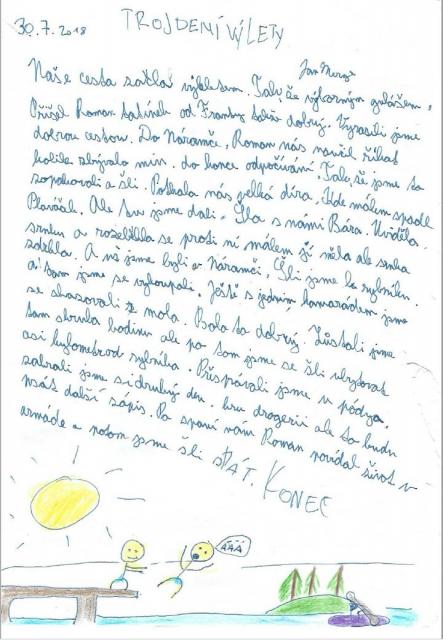 30.7.2018
TROJDENÍ VÝLETY
Naše cesta začla výkletem. Tak že výborným gulášem.
Přišel Roman tatínek od Franty taky dobrý. Vyrazili jsme
dobrou cestou. Do Náramče. Roman nás naučil říkat
kolik zbývalo min. do konce odpočívání. Tak že jsme to
zopakovali a šli. Potkala nás velká díra. Kde málem spadl
Plaváček. Ale tu jsme dali. Šla s námi Bára. Uviděla
srnku a rozeběhla se proti ní málem jí měla ale srnka
zdrhla. A už jsme byli v Náramči. Šli jsme k rybníku
a tam jsme se vykoupali. Ještě s jedním kamarádem jsme
se skazovali z mola. Bylo to dobrý. Zůstali jsme
tam zhruba hodinu ale po tom jsme se šli ubytovat
asi kylometr od rybníka. Přespávali jsme u
zahrali jsme si druhý den hru drogerii ale to budu
psát další zápis. Po spaní nám Roman povídal život v
armádě a potom jsme šli SPÁT. KONEC
ÁÁÁ